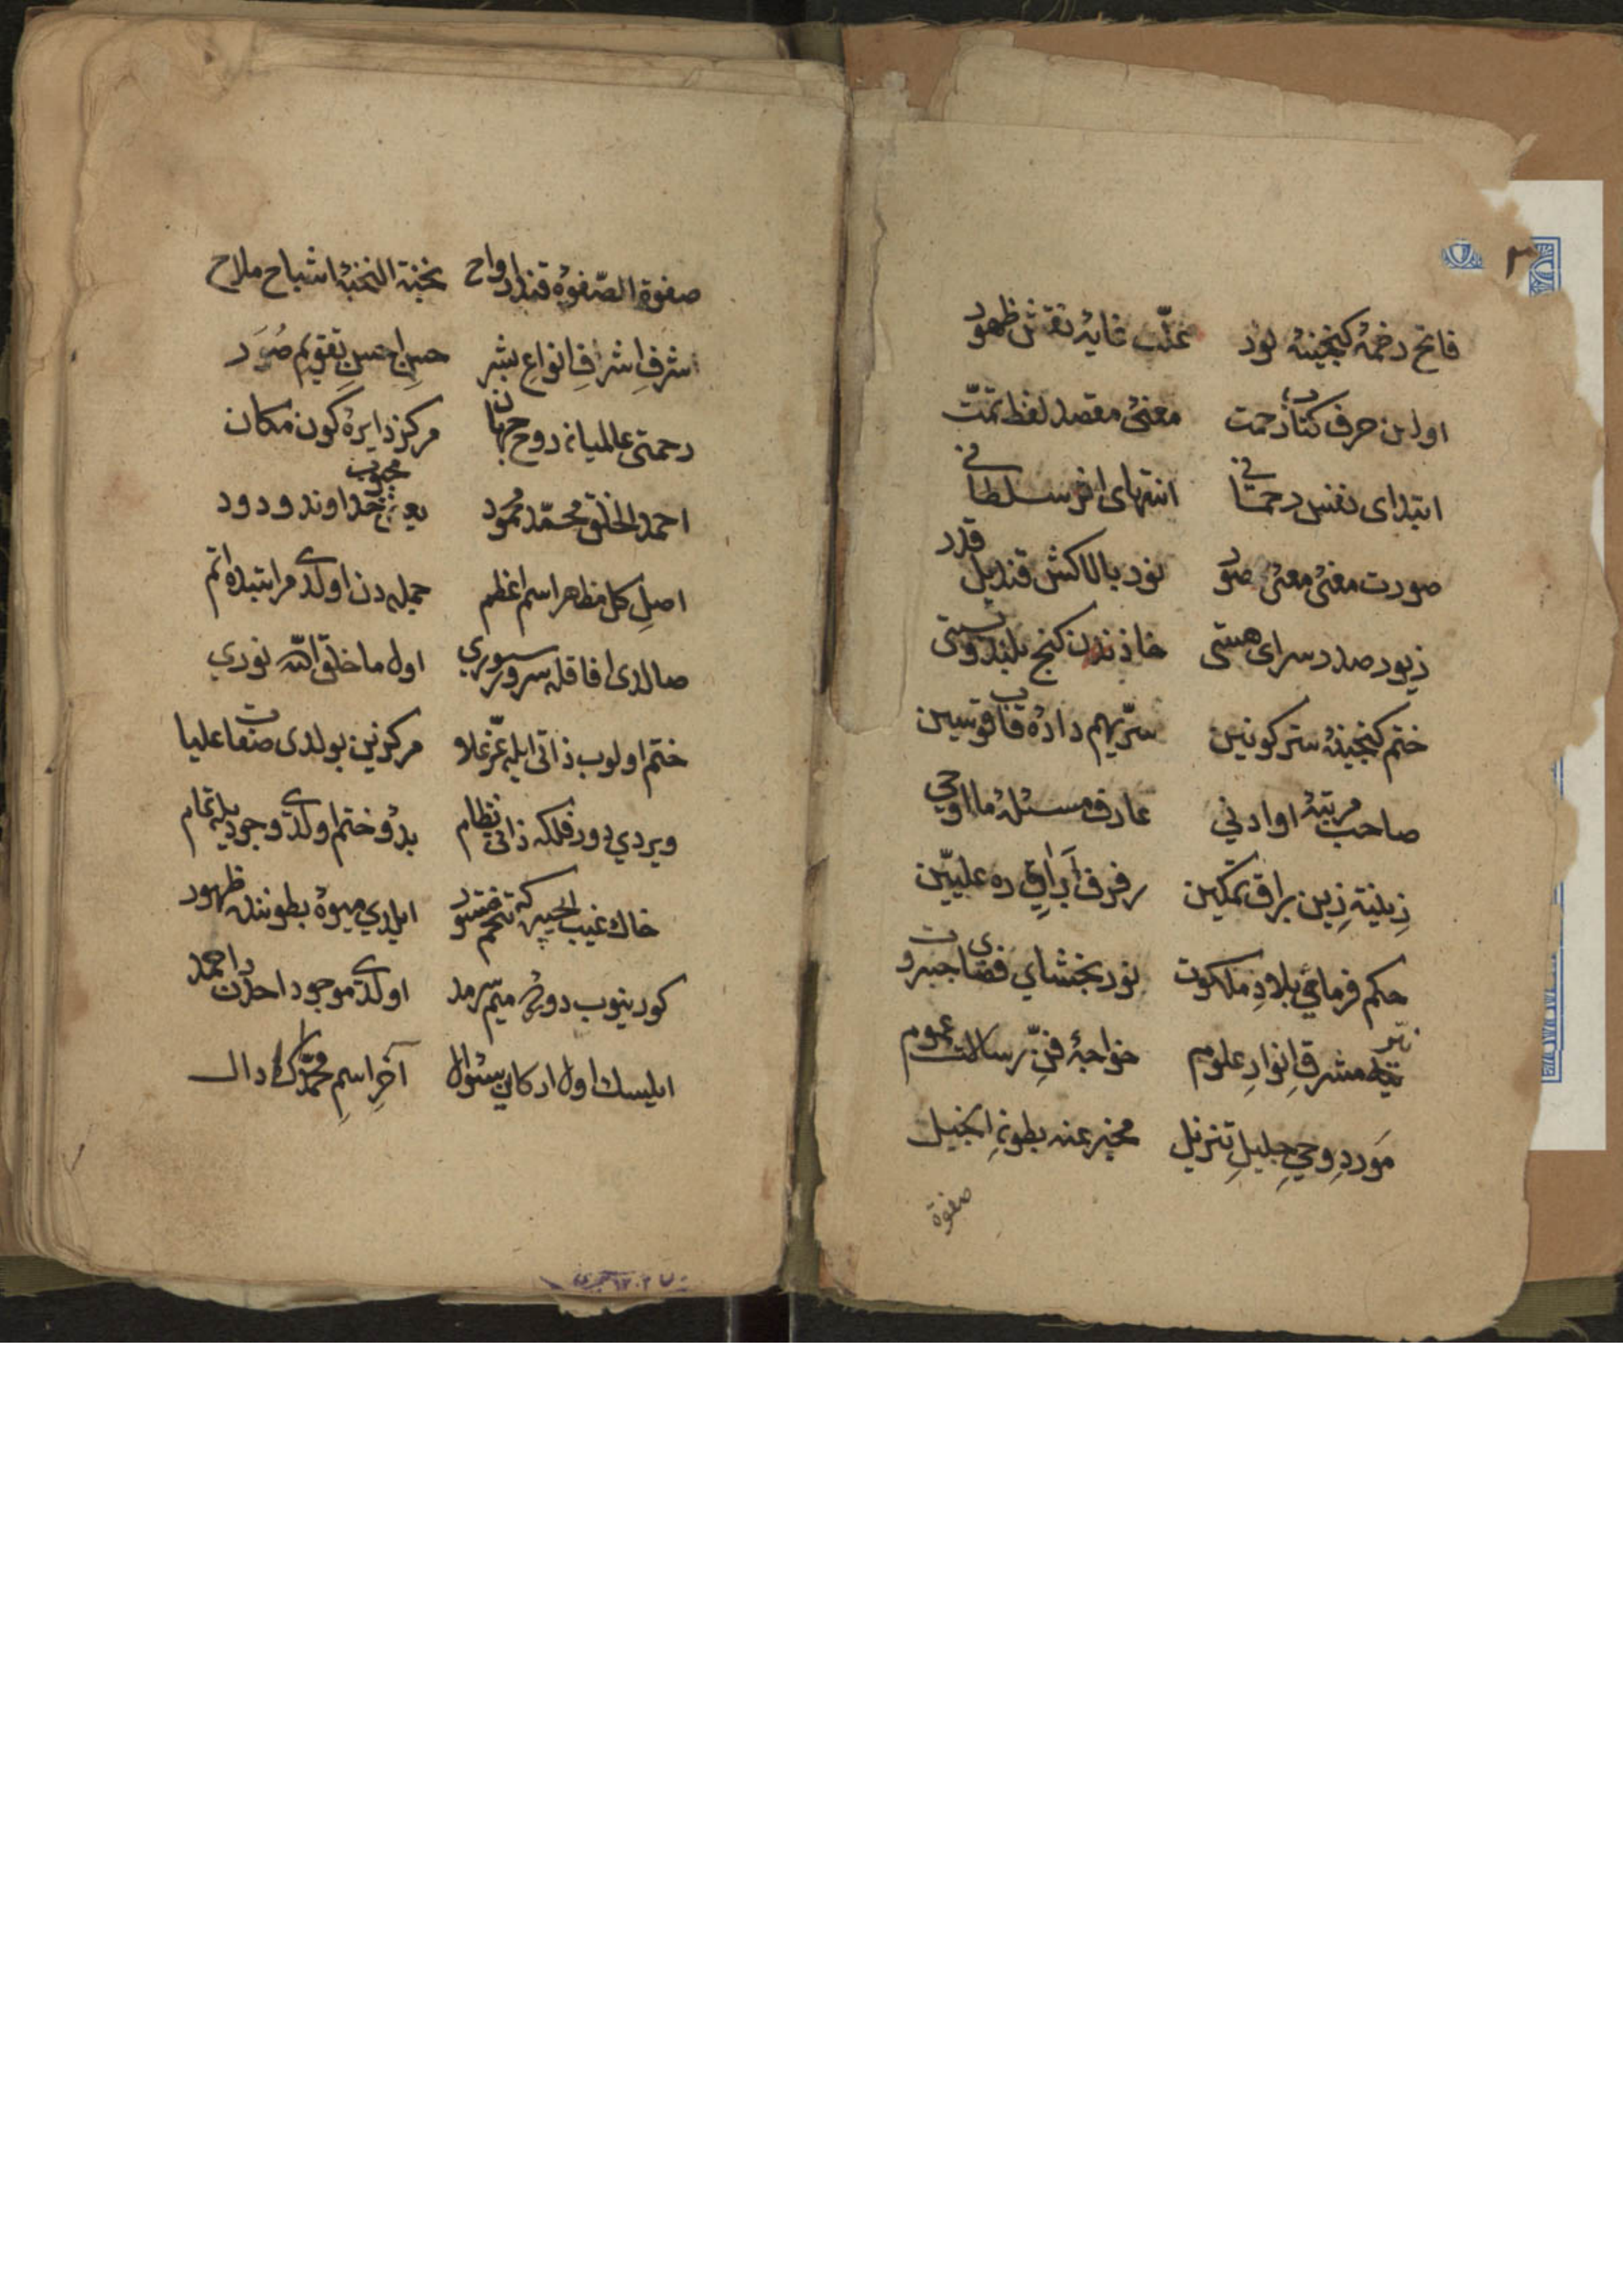 ٢
فاتح رخمهٔ کنجینهٔ نور علّت غایهٔ نقش ظهور
اولین حرف کتاب رحمت معنیٔ مقصد لفظ تمّت
ابتدای نفس رحمانی انتهای اثر سلطانی
صورت معنیٔ معنیٔ صور نور بالاکش قندیل قدر
زیور صدر سرای هستی خازن کنج بلند و پستی
ختم کنجینهٔ ستر کونین سرّیهم دادهٔ قاب قوسین
صاحب مرتبهٔ او ادنی عارف مسئلهٔ ما اوحی
زینة زین براق تمکین رفرف آرای ره علیّین
حکم فرمای بلاد ملکوت نور بخشای فضای جبروت
نیّر مشرق انوار علوم خواجهٔ فنّ رسالت عموم
مورد وحی جلیل تنزیل مخبر عنه بطون انجیل
صفوة
صفوة الصّفوهٔ قند ارواح نخبة النخبهٔ اشباح ملاح
اشرف اشراف انواع بشر حسن احسن تقویم صور
رحمتی عالمیانه روح جهان مرکز دایرهٔ کون مکان
احمد الخلق محمّد محمود یعنی محبوب خداوند ودود
اصل کل مظهر اسم اعظم جمله دن اولدی مرتبه ده اتم
صالدی افاقه سرور سوری اول ما خلق اللّه نوری
ختم اولوب ذاتی ایله عزّ علا مرکزین بولدی صفات علیا
ویردی دور فلکه ذاتی نظام بدؤ و ختم اولدی وجودیله تمام
ایلدی میوهٔ بطونندن ظهور
کورینوب دورهٔ میم سرمد اولدی موجود احددن احمد
ایلیسک اول ارکانی سئوال آخر اسم محمّدک دال